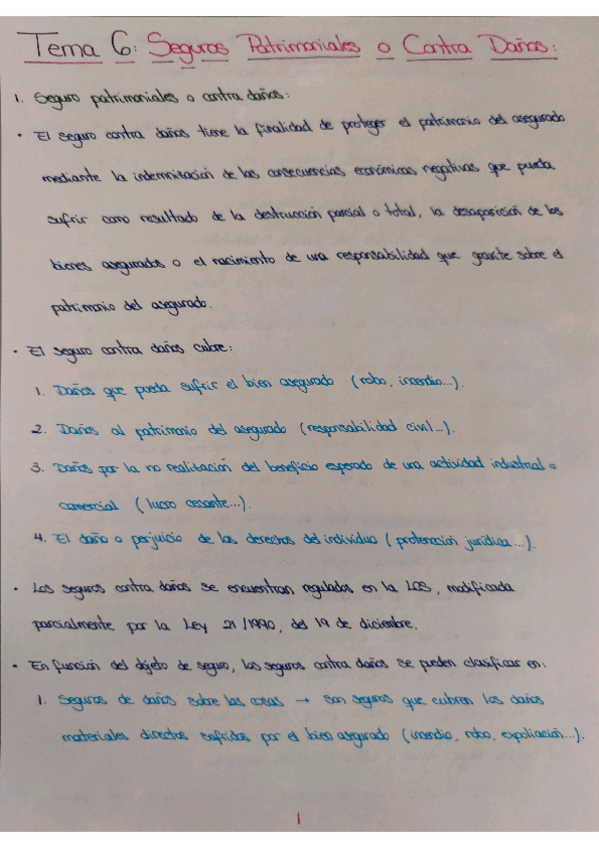 Tema 6: Seguros Patrimoniales o Contra Daños:
1. Seguro patrimoniales o contra daños:
• El seguro contra daños tiene la finalidad de proteger el patrimonio del asegurado
mediante la indemnización de las consecuencias económicas negativas que pueda
sufrir como resultado de la destrucción parcial o total, la desaparición de los
bienes asegurados o el nacimiento de una responsabilidad que gravite sobre el
patrimonio del asegurado.
• El seguro contra daños cubre:
1. Daños que pueda sufrir el bien asegurado (robo, incendio...).
2. Daños al patrimonio del asegurado (responsabilidad civil...).
3. Daños por la no realización del beneficio esperado de una actividad industrial o
comercial (lucro cesante...).
4. El daño o perjuicio de los derechos del individuo (protección jurídica...).
• Los seguros contra daños se encuentran regulados en la LCS, modificada
parcialmente por la Ley 21/1990, del 19 de diciembre.
• En función del objeto de seguro, los seguros contra daños se pueden clasificar en:
1. Seguros de daños sobre las cosas → son seguros que cubren los daños
materiales directos sufridos por el bien asegurado (incendio, robo, expoliación...).
1